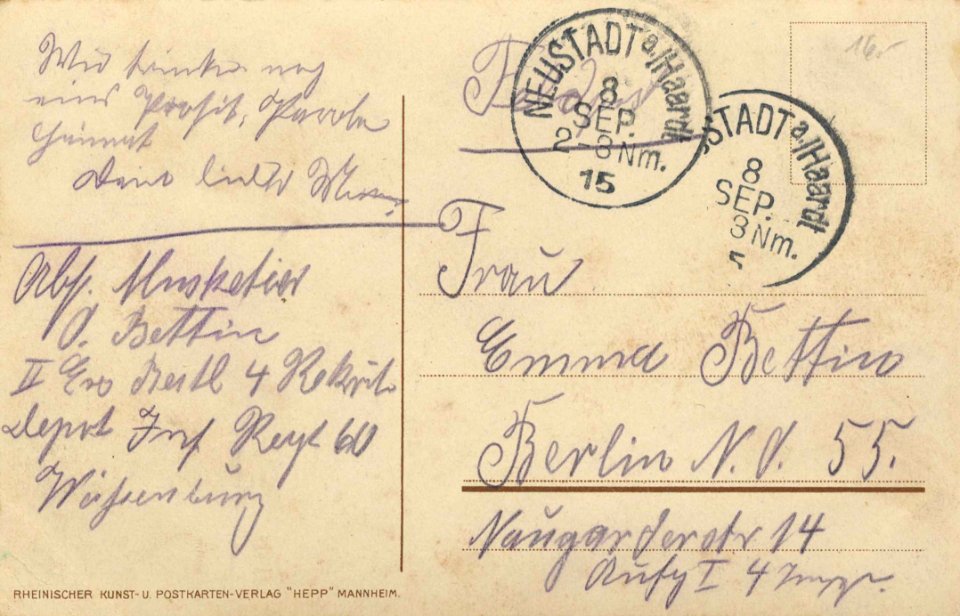 Wir trinken noch
eins Prosit, Parole
Heimat
Dein lieber
Abs. Musketier
O. Bettin
II Ers Batl 4 Rekrut
Depot Inf Regt 60
Weissenburg
NEUSTADT a./Haardt
8
SEP.
2-3 Nm.
15
STADT a./Haardt
8
SEP.
3 Nm.
5
16.-
Frau
Emma Bettin
Berlin N.O. 55.
Naugarderstr 14
Aufg I 4
RHEINISCHER KUNST- U. POSTKARTEN-VERLAG "HEPP" MANNHEIM.